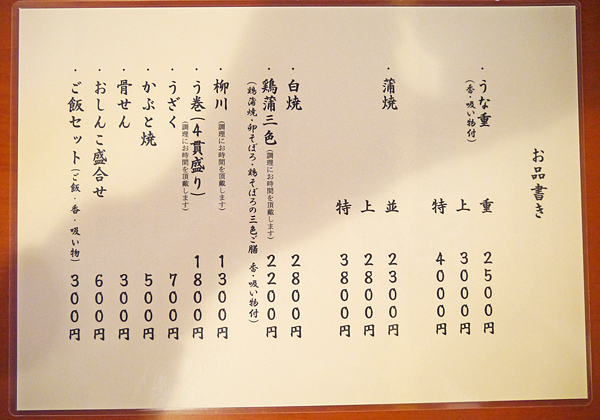 お品書き
・うな重 重 2500円
(香・吸い物付) 上 3000円
特 4000円
・蒲焼 並 2300円
上 2800円
特 3800円
・白焼 2800円
・鶏蒲三色(調理にお時間を頂戴します) 2200円
(鶏蒲焼・卵そぼろ・鶏そぼろの三色ご膳 香・吸い物付)
・柳川(調理にお時間を頂戴します) 1300円
・う巻(4貫盛り)(調理にお時間を頂戴します) 1800円
・うざく 700円
・かぶと焼 500円
・骨せん 300円
・おしんこ盛合せ 600円
・ご飯セット(ご飯・香・吸い物) 300円